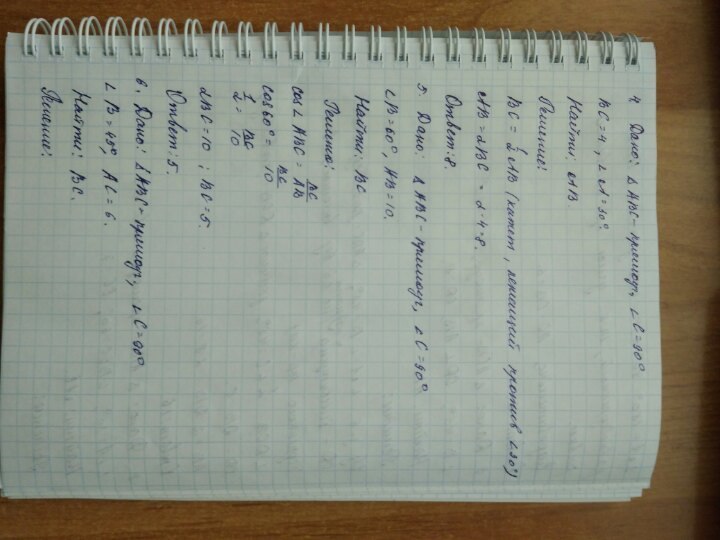 4. Дано: ΔABC - прямоуг, ∠C = 90°
BC = 4, ∠A = 30°.
Найти: AB.
Решение:
BC = 1/2 AB (катет, лежащий против ∠30°)
AB = 2BC = 2·4=8.
Ответ: 8.
5. Дано: ΔABC - прямоуг, ∠C = 90°
∠B = 60°, AB = 10.
Найти: BC
Решение:
cos∠ABC = BC/AB
cos60° = BC/10
1/2 = BC/10
2BC = 10; BC = 5.
Ответ: 5.
6. Дано: ΔABC - прямоуг, ∠C = 90°
∠B = 45°, AC = 6.
Найти: BC.
Решение: